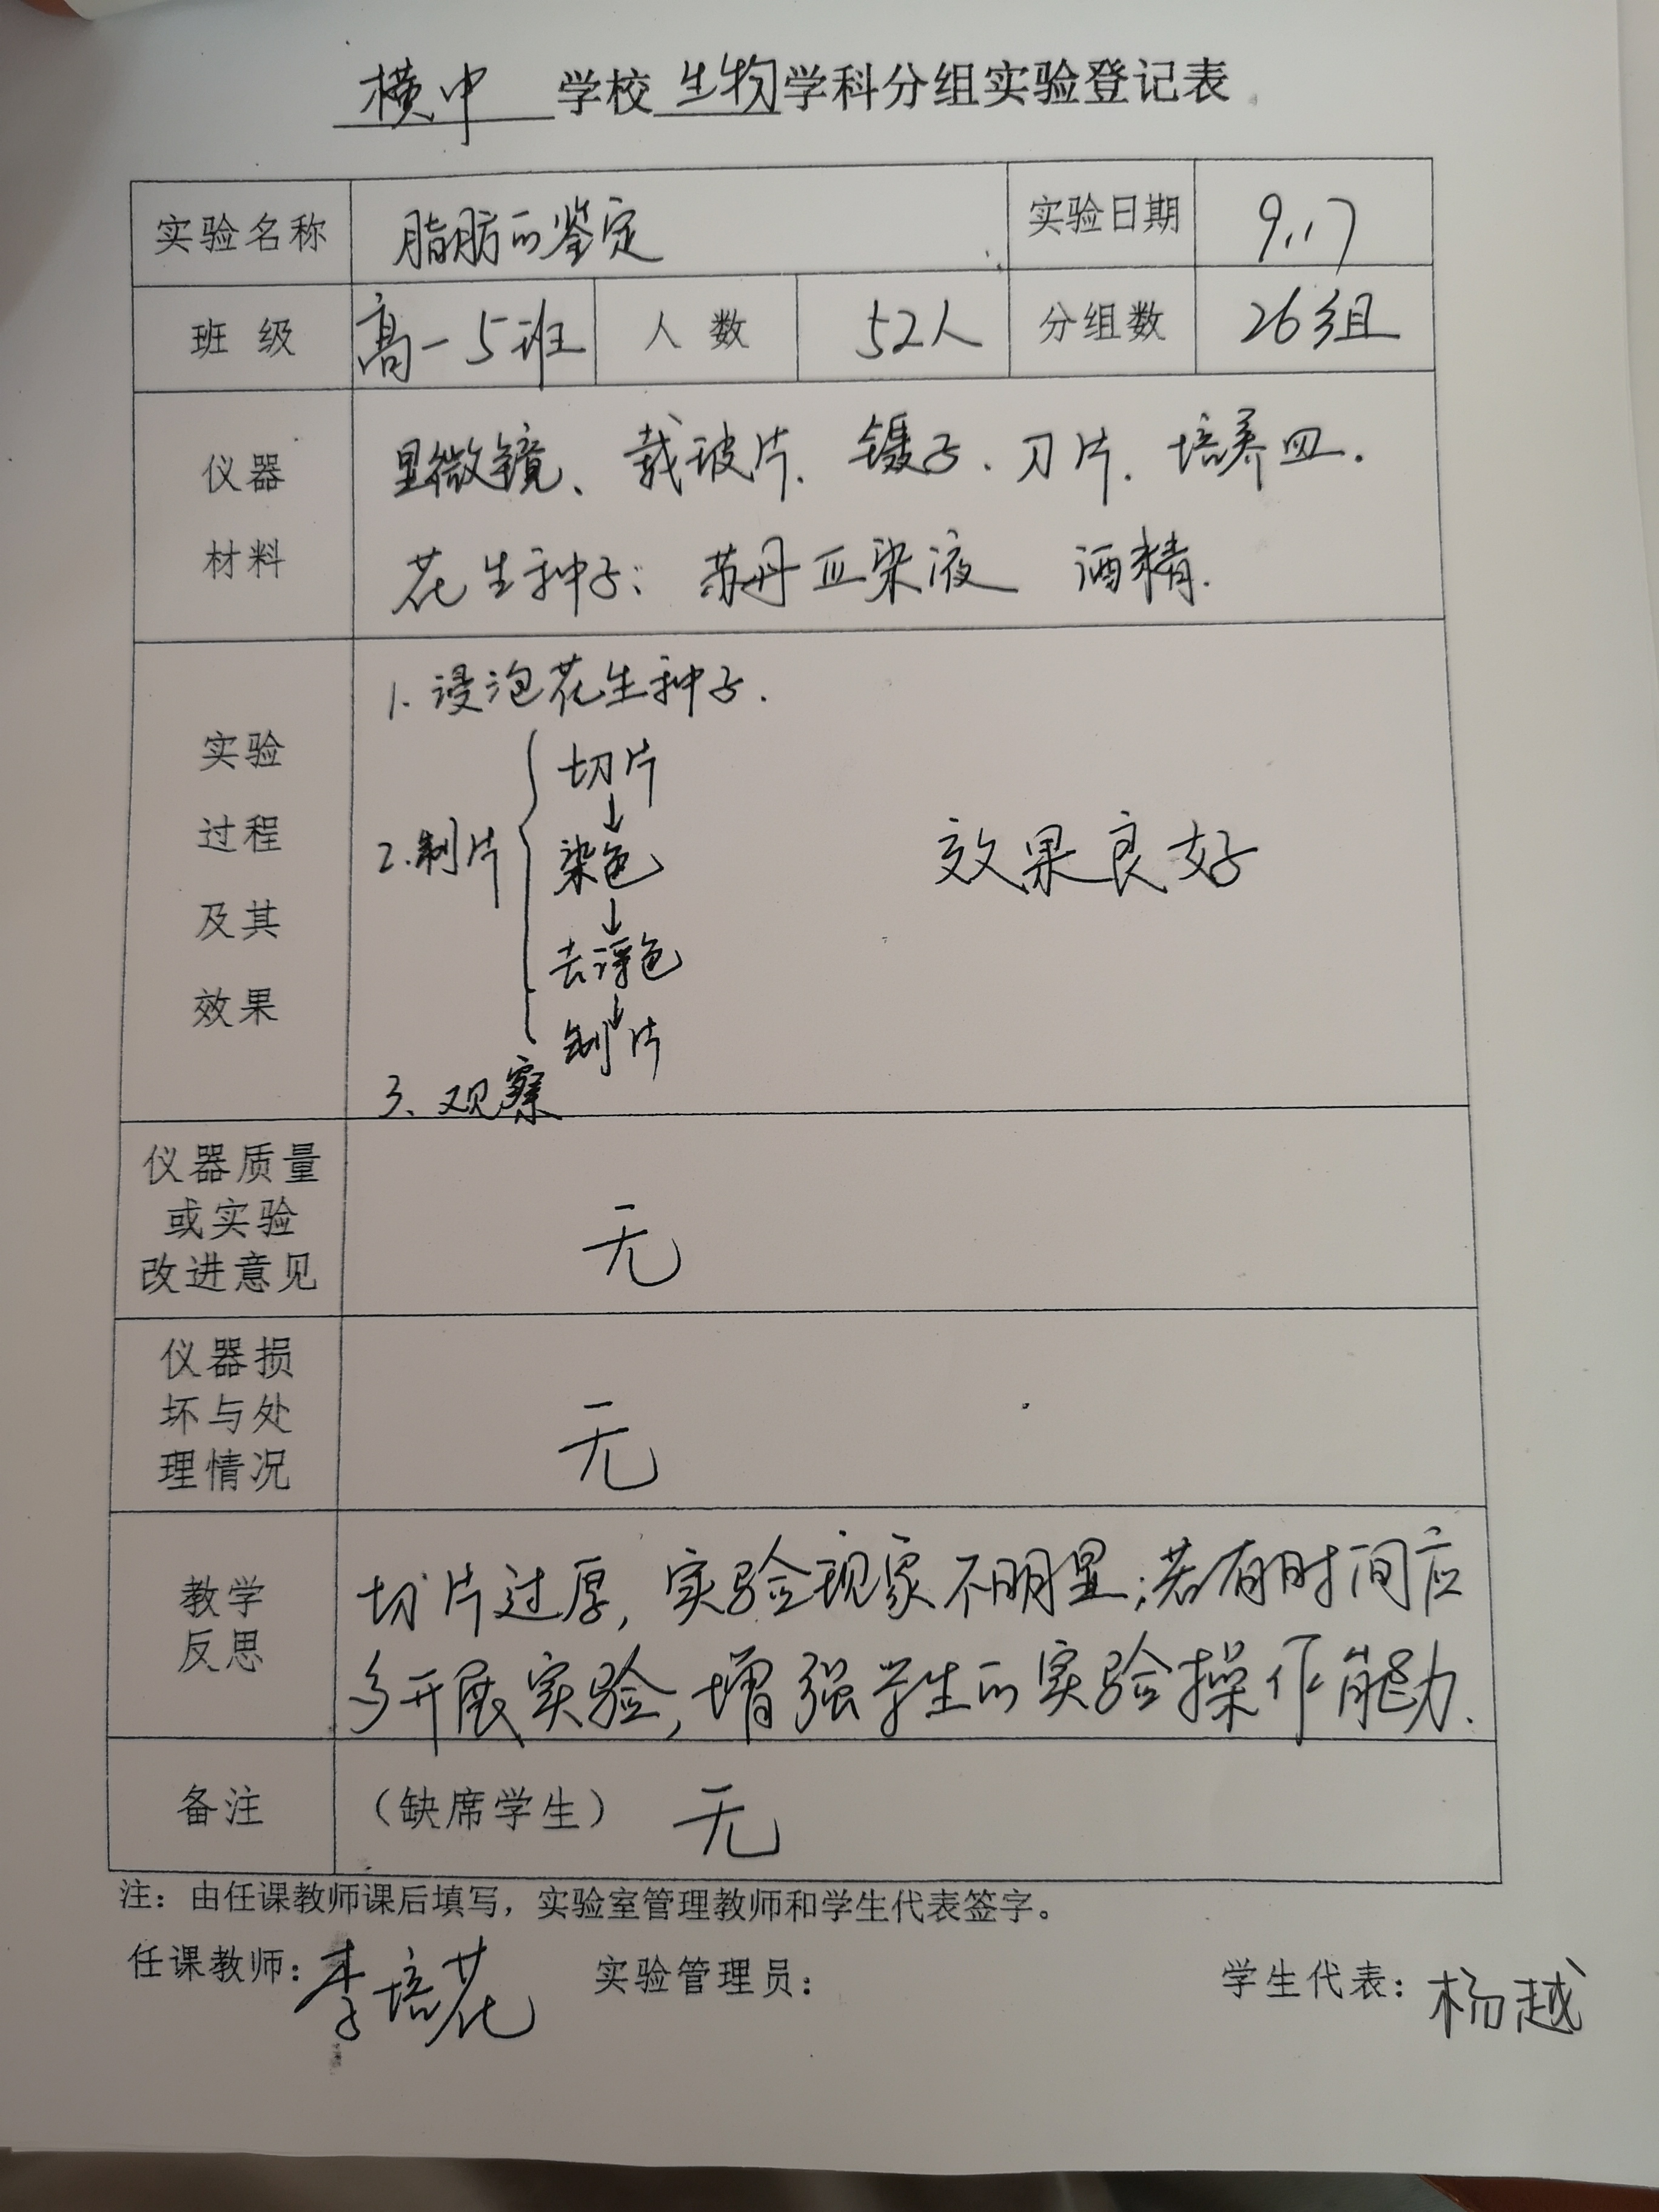 横中 学校 生物 学科分组实验登记表
实验名称 脂肪的鉴定 实验日期 9.17
班 级 高一5班 人 数 52人 分组数 26组
仪器 显微镜、载玻片. 镊子. 刀片. 培养皿.
材料 花生种子; 苏丹Ⅲ染液 酒精.
1. 浸泡花生种子.
实验
过程
及其
效果
切片
↓
2. 制片 { 染色
↓
去浮色
↓
制片
3、观察
效果良好
仪器质量
或实验
改进意见
无
仪器损
坏与处
理情况
无
教学
反思
切片过厚, 实验现象不明显;若有时间应
多开展实验,增强学生的实验操作能力.
备注 （缺席学生） 无
注：由任课教师课后填写，实验室管理教师和学生代表签字。
任课教师：李培花 实验管理员： 学生代表：杨越